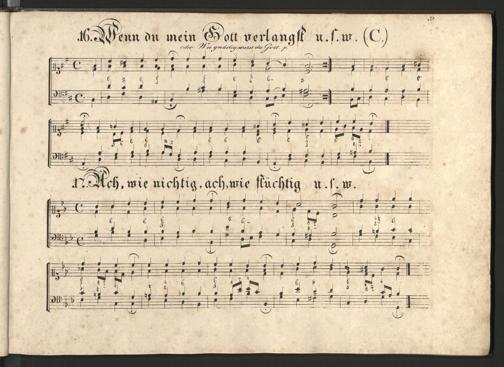 16. Wenn du mein Gott verlangst u. s. w. (C.)
oder Wie gnädig warst du Gott p.
17. Ach, wie nichtig, ach, wie flüchtig u. s. w.